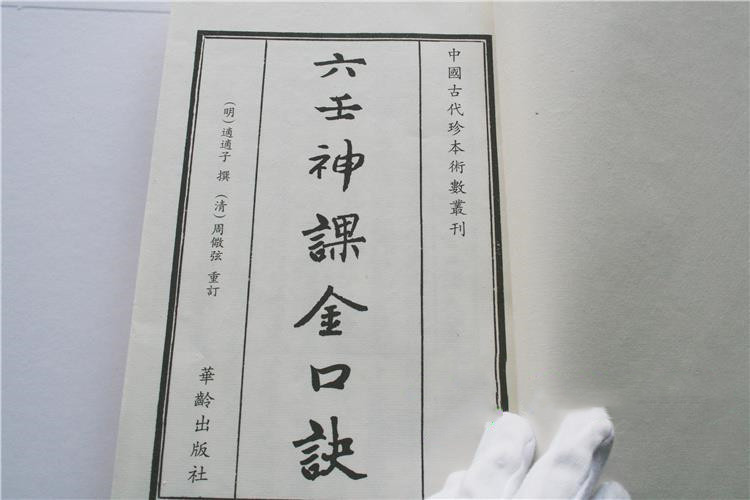 中國古代珍本術數叢刊
六壬神課金口訣
（明）適適子 撰（清）周儆弦 重訂
華齡出版社